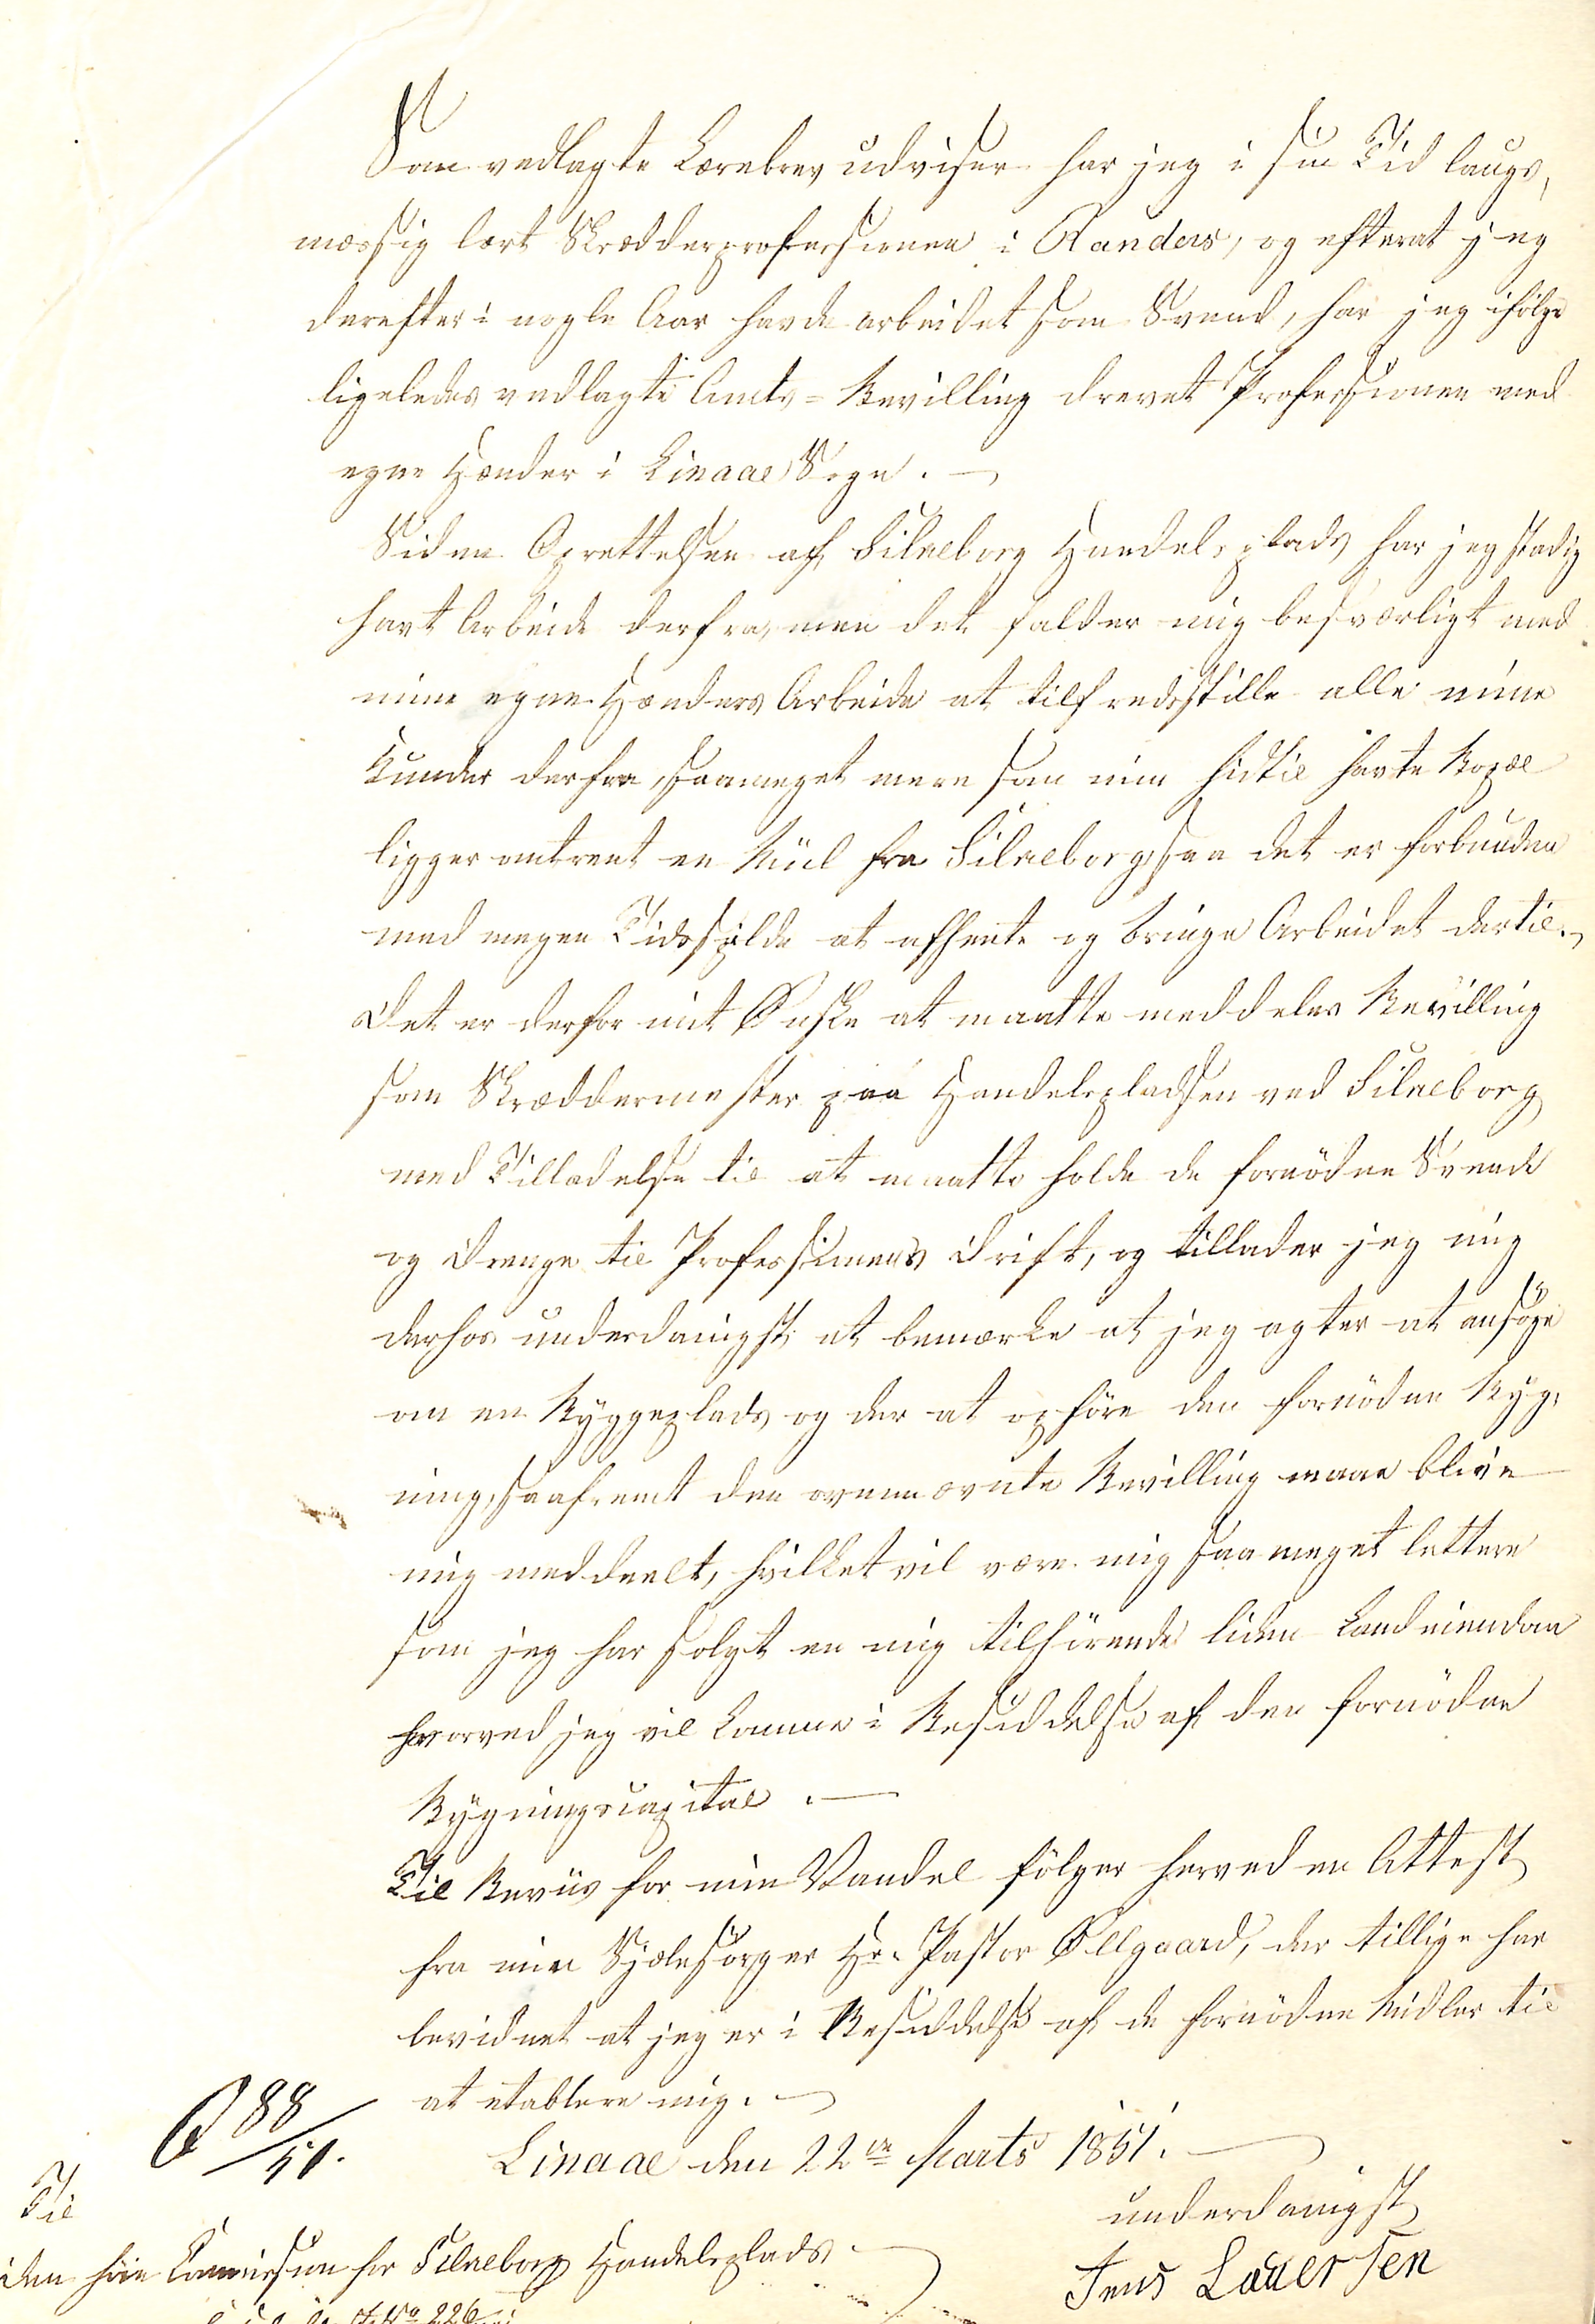 Som vedlagte Lærebrev udviser har jeg i sin Tid laugs,
mæssig lært Skrædderprofessionen i Randers, og efterat jeg
derefter i nogle Aar havde arbeidet som Svend, har jeg ifölge
ligeledes vedlagte Amts=Bevilling drevet Professionen med
egne Hænder i Linaae Sogn. —
Siden Oprettelsen af Silkeborg Handelsplads har jeg stadig
havt Arbeide derfra, men det falder mig besværligt med
mine egne Hænders Arbeide at tilfredsstille alle mine
Kunder derfra, saameget mere som min hidtil havte Bopæl
ligger omtrent en Miil fra Silkeborg, saa det er forbunden
med megen Tidsspilde at afhente og bringe Arbeidet dertil. —
Det er derfor mit Ønske at maatte meddeles Bevilling
som Skræddermester paa Handelspladsen ved Silkeborg
med Tilladelse til at maatte holde de fornödne Svende
og Drenge til Professionens Drift, og tillader jeg mig
derhos underdanigst at bemærke at jeg agter at ansöge
om en Byggeplads og der at opföre den fornödne Byg,
ning, saafremt den ovennævnte Bevilling maae blive
mig meddeelt, hvilket vil være mig saa meget lettere
som jeg har solgt en mig tilhörende liden Landeiendom
hvorved jeg vil komme i Besiddelse af den fornödne
Bygningscapital. —
Til Beviis for min Vandel fölger herved en Attest
fra min Sjælesörger Hr. Pastor Øllgaard, der tillige har
bevidnet at jeg er i Besiddelse af de fornödne Midler til
at etablere mig. —
Linaae den 22de Marts 1851. —
underdanigst
Jens Lauersen
88/51.
Til
den höie Commission for Silkeborg Handelsplads
No 226